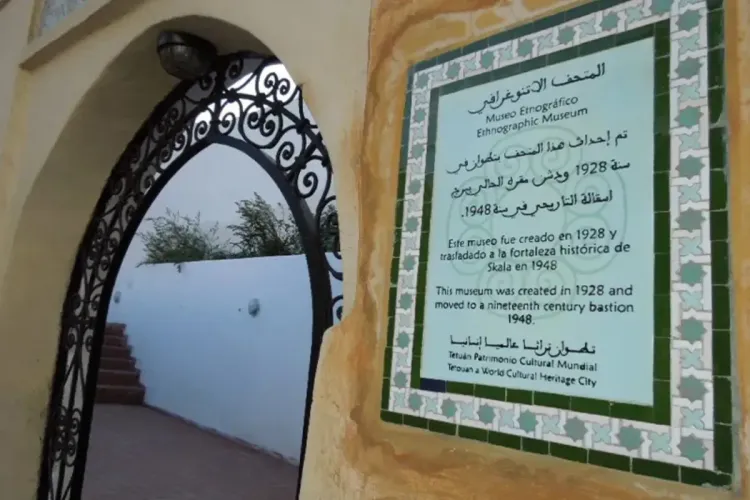 المتحف الإثنوغرافي
Museo Etnográfico
Ethnographic Museum
تم إحداث هذا المتحف بتطوان في
سنة 1928 ودشن مقره الحالي ببرج
اسقالة التاريخي في سنة 1948.
Este museo fue creado en 1928 y
trasfadado a la fortaleza histórica de
Skala en 1948
This museum was created in 1928 and
moved to a nineteenth century bastion
1948.
تطوان تراثا عالميا إنسانيا
Tetuán Patrimonio Cultural Mundial
Tetouan a World Cultural Heritage City